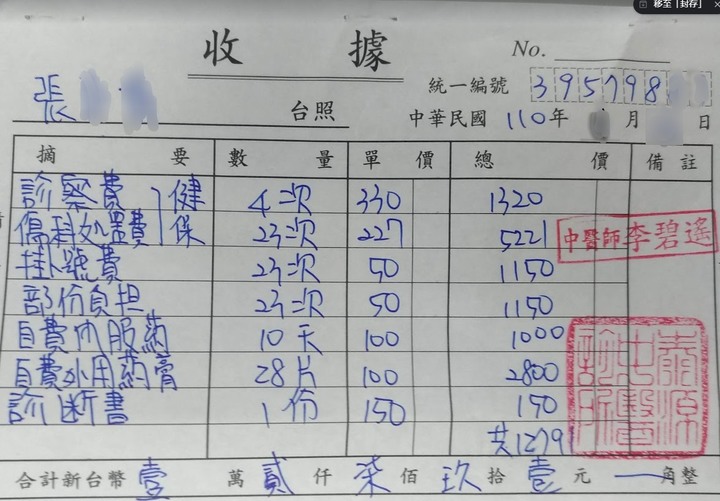 移至「封存」
收據 No.
統一編號 395798
張 台照 中華民國 110年 月 日
摘要 數量 單價 總價 備註
診察費 健 4次 330 1320
傷科処置費 保 23次 227 5221
中醫師李碧遙
掛號費 23次 50 1150
部份負担 23次 50 1150
自費內服葯 10天 100 1000
自費外用葯膏 28片 100 2800
診断書 1份 150 150
泰源
中醫
診所
共1279
合計新台幣壹萬貳仟柒佰玖拾壹元一角整